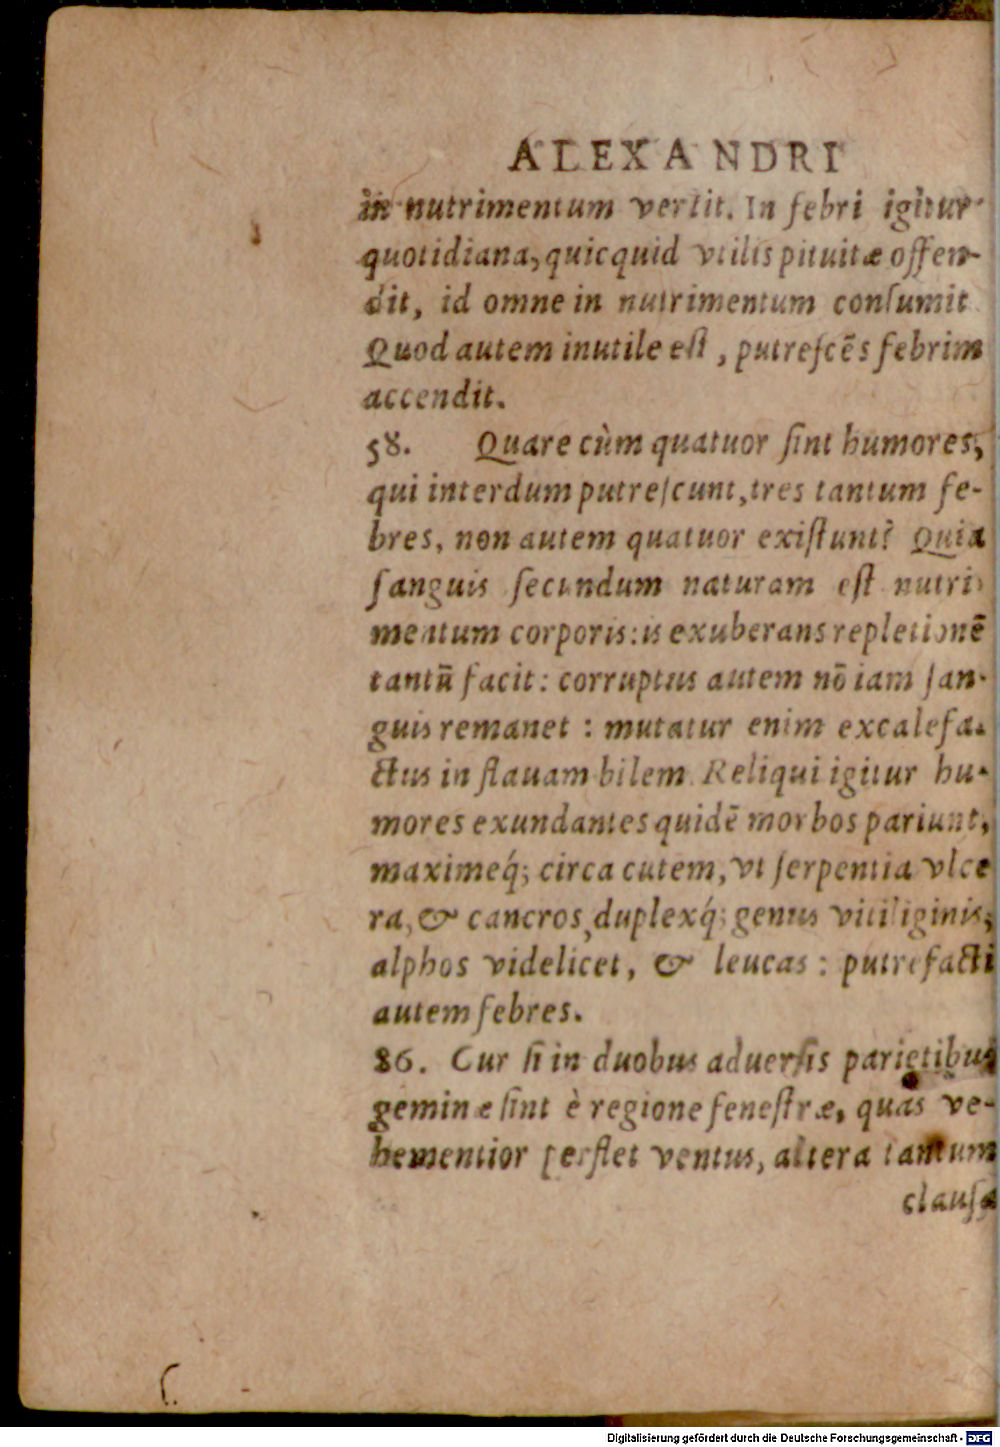 ALEXANDRI
in nutrimentum vertit. In febri igitur
quotidiana, quicquid vtilis pituitæ offen-
dit, id omne in nutrimentum conſumit
Quod autem inutile eſt, putreſcẽs febrim
accendit.
58. Quare cùm quatuor ſint humores,
qui interdum putreſcunt, tres tantum fe-
bres, non autem quatuor exiſtunt? Quia
ſanguis ſecundum naturam eſt nutri
mentum corporis: is exuberans repletionẽ
tantũ facit: corruptus autem nõ iam ſan-
guis remanet: mutatur enim excalefa-
ctus in flauam bilem. Reliqui igitur hu-
mores exundantes quidẽ morbos pariunt,
maximeq́; circa cutem, vt ſerpentia vlce
ra, & cancros, duplexq́; genus vitiliginis,
alphos videlicet, & leucas: putrefacti
autem febres.
86. Cur ſi in duobus aduerſis parietibus
geminæ ſint è regione feneſtræ, quas ve-
hementior perflet ventus, altera tantum
clauſa
Digitalisierung gefördert durch die Deutsche Forschungsgemeinschaft - DFG